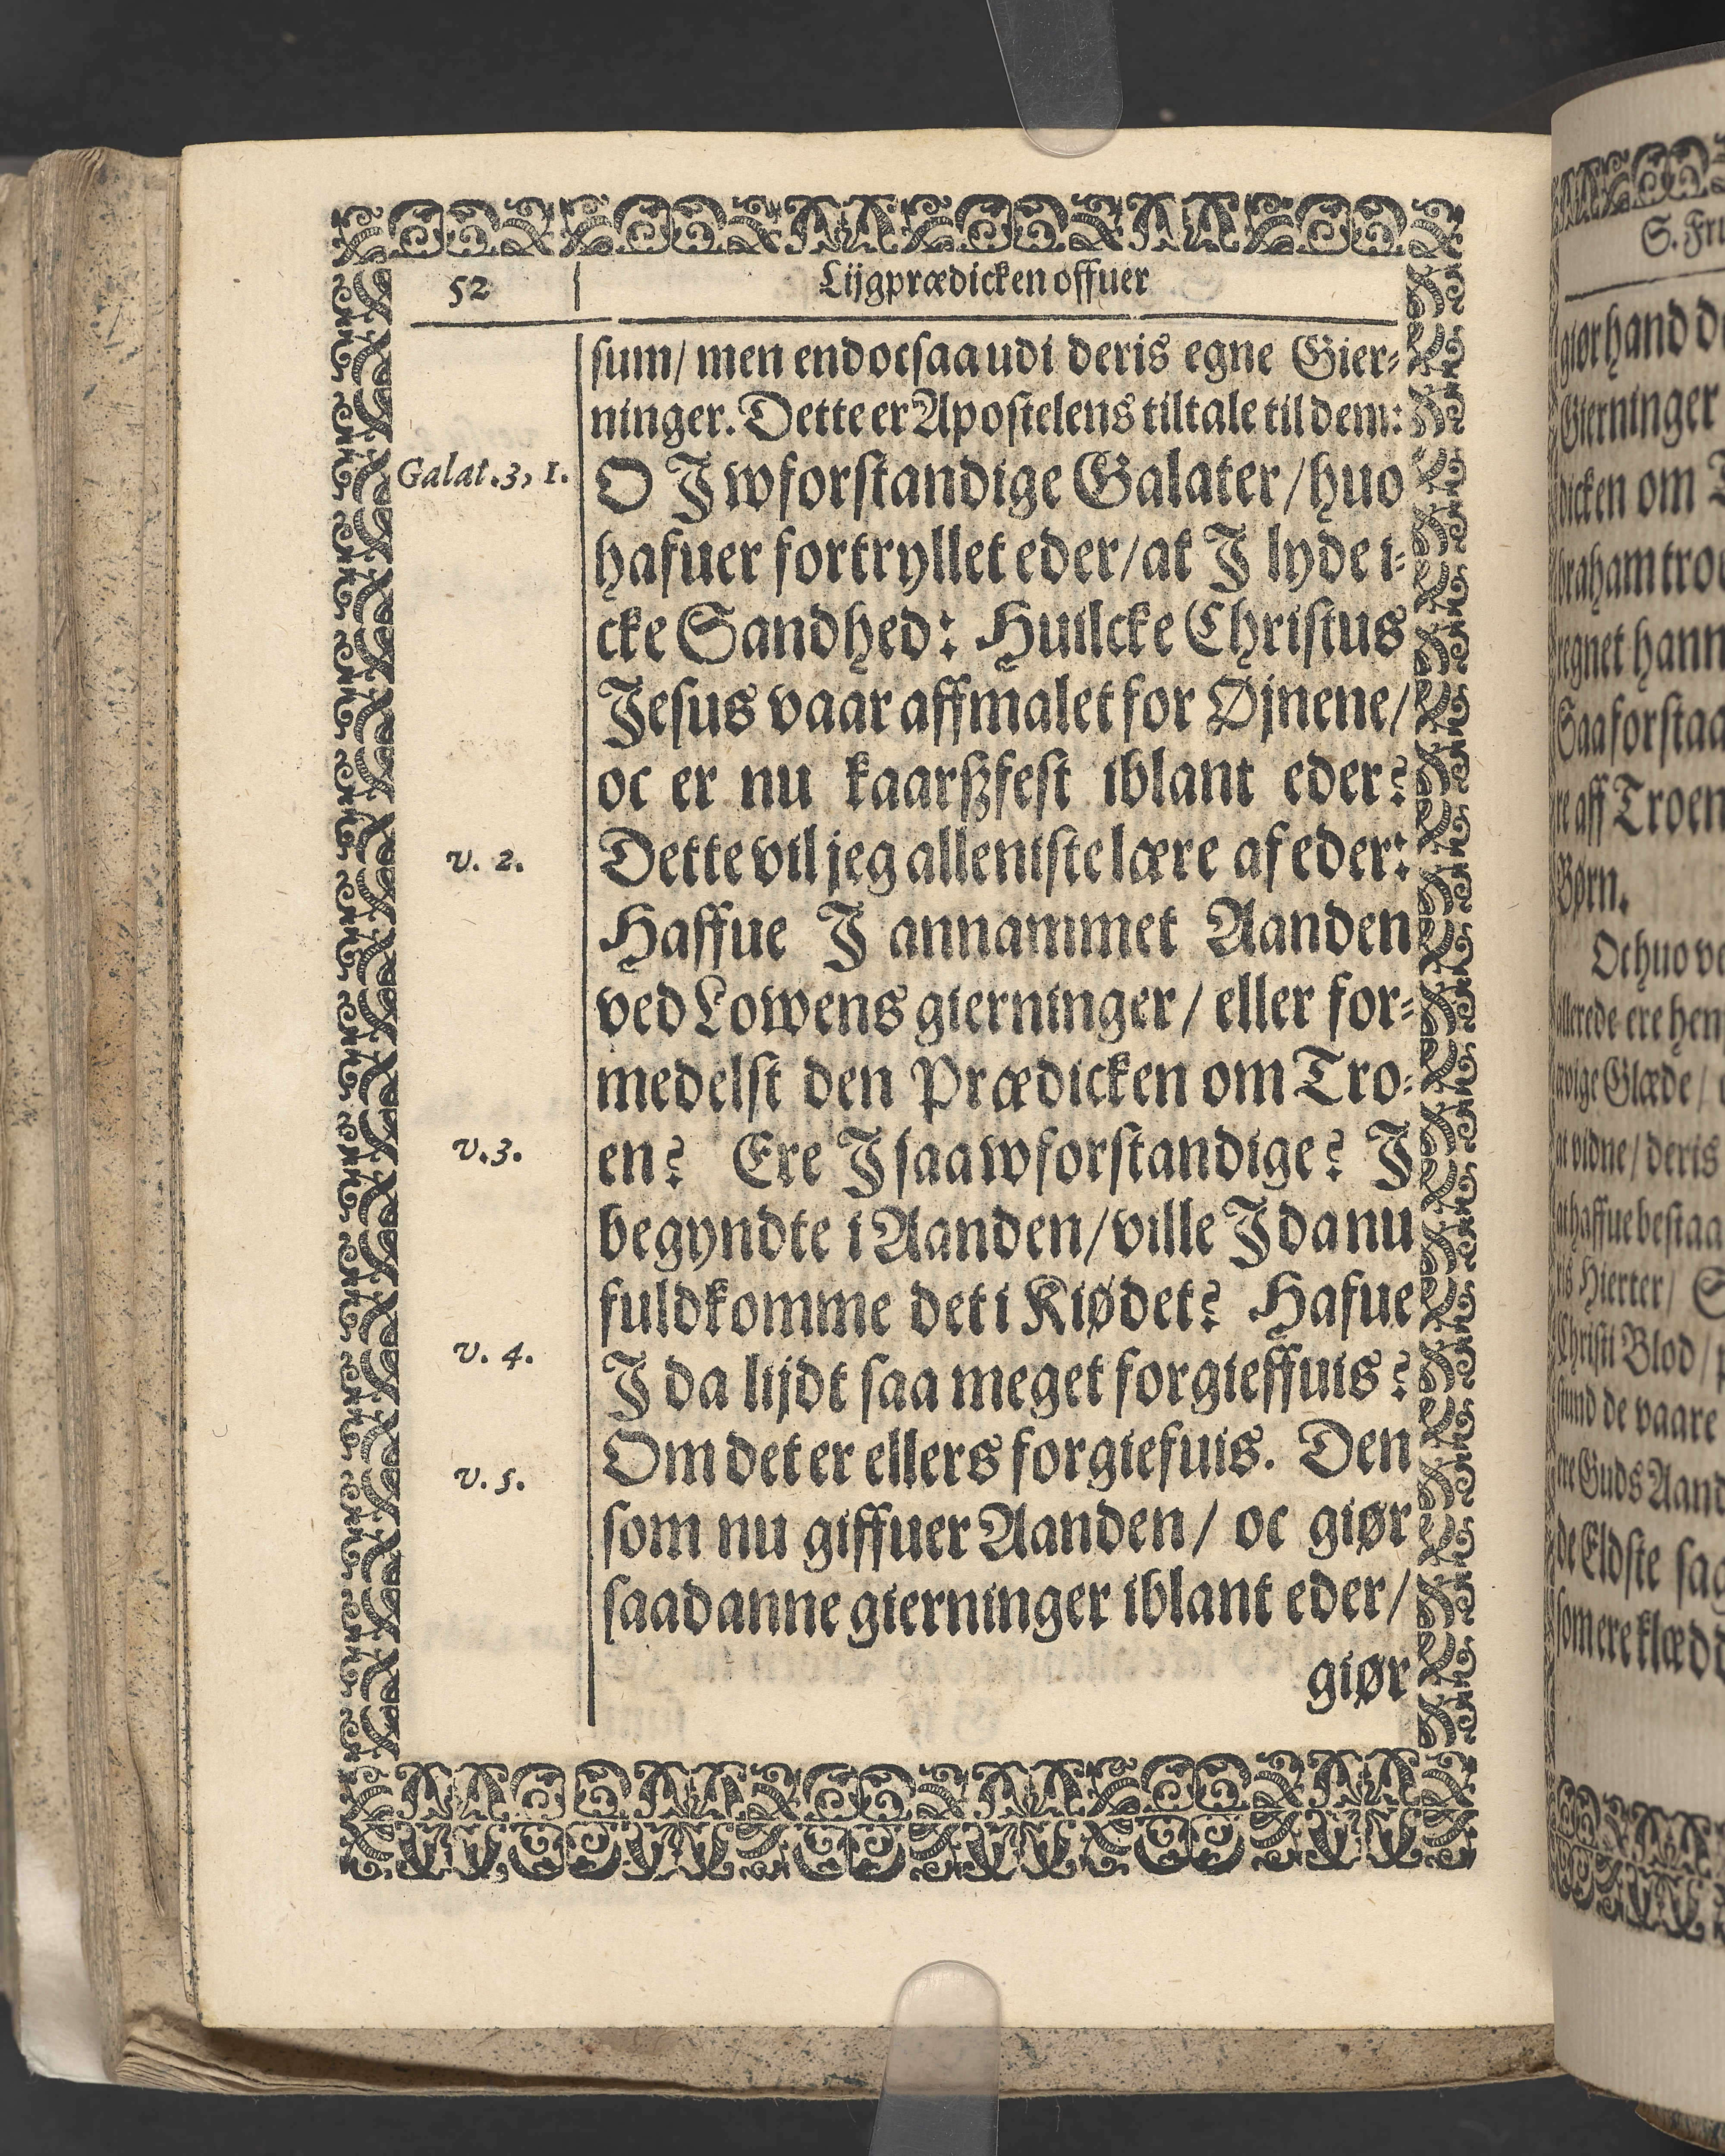 52
Lijgprædicken offuer
sum/ men end ocsaa udi deris egne Gier⸗
ninger. Dette er Apostelens tiltale til dem:
Galat. 3, 1.
O J wforstandige Galater/ huo
hafuer fortryllet eder/ at J lyde i⸗
cke Sandhed: Huilcke Christus
Jesus vaar affmalet for Øjnene/
oc er nu kaarßfest iblant eder?
v. 2.
Dette vil jeg alleniste lære af eder:
Haffue J annammet Aanden
ved Lowens gierninger/ eller for⸗
medelst den Prædicken om Tro⸗
v. 3.
en? Ere J saa wforstandige? J
begyndte i Aanden/ ville J da nu
fuldkomme det i Kiødet? Hafue
v. 4.
J da lijdt saa meget forgieffuis?
Om det er ellers forgiefuis. Den
v. 5.
som nu giffuer Aanden/ oc giør
saadanne gierninger iblant eder/
giør
S. Fru
giør hand
Gierninger
dicken om
braham troe
regnet hann
Saa forstaa
re aff Troen
Børn.
Oc huo
allerede ere hen
ævige Glæde/
at vidne/ deris
at haffue bestaa
ris Hierter/
Christi Blod/
stund de vaare
ere Guds Aand
de Eldste sag
som ere klæd